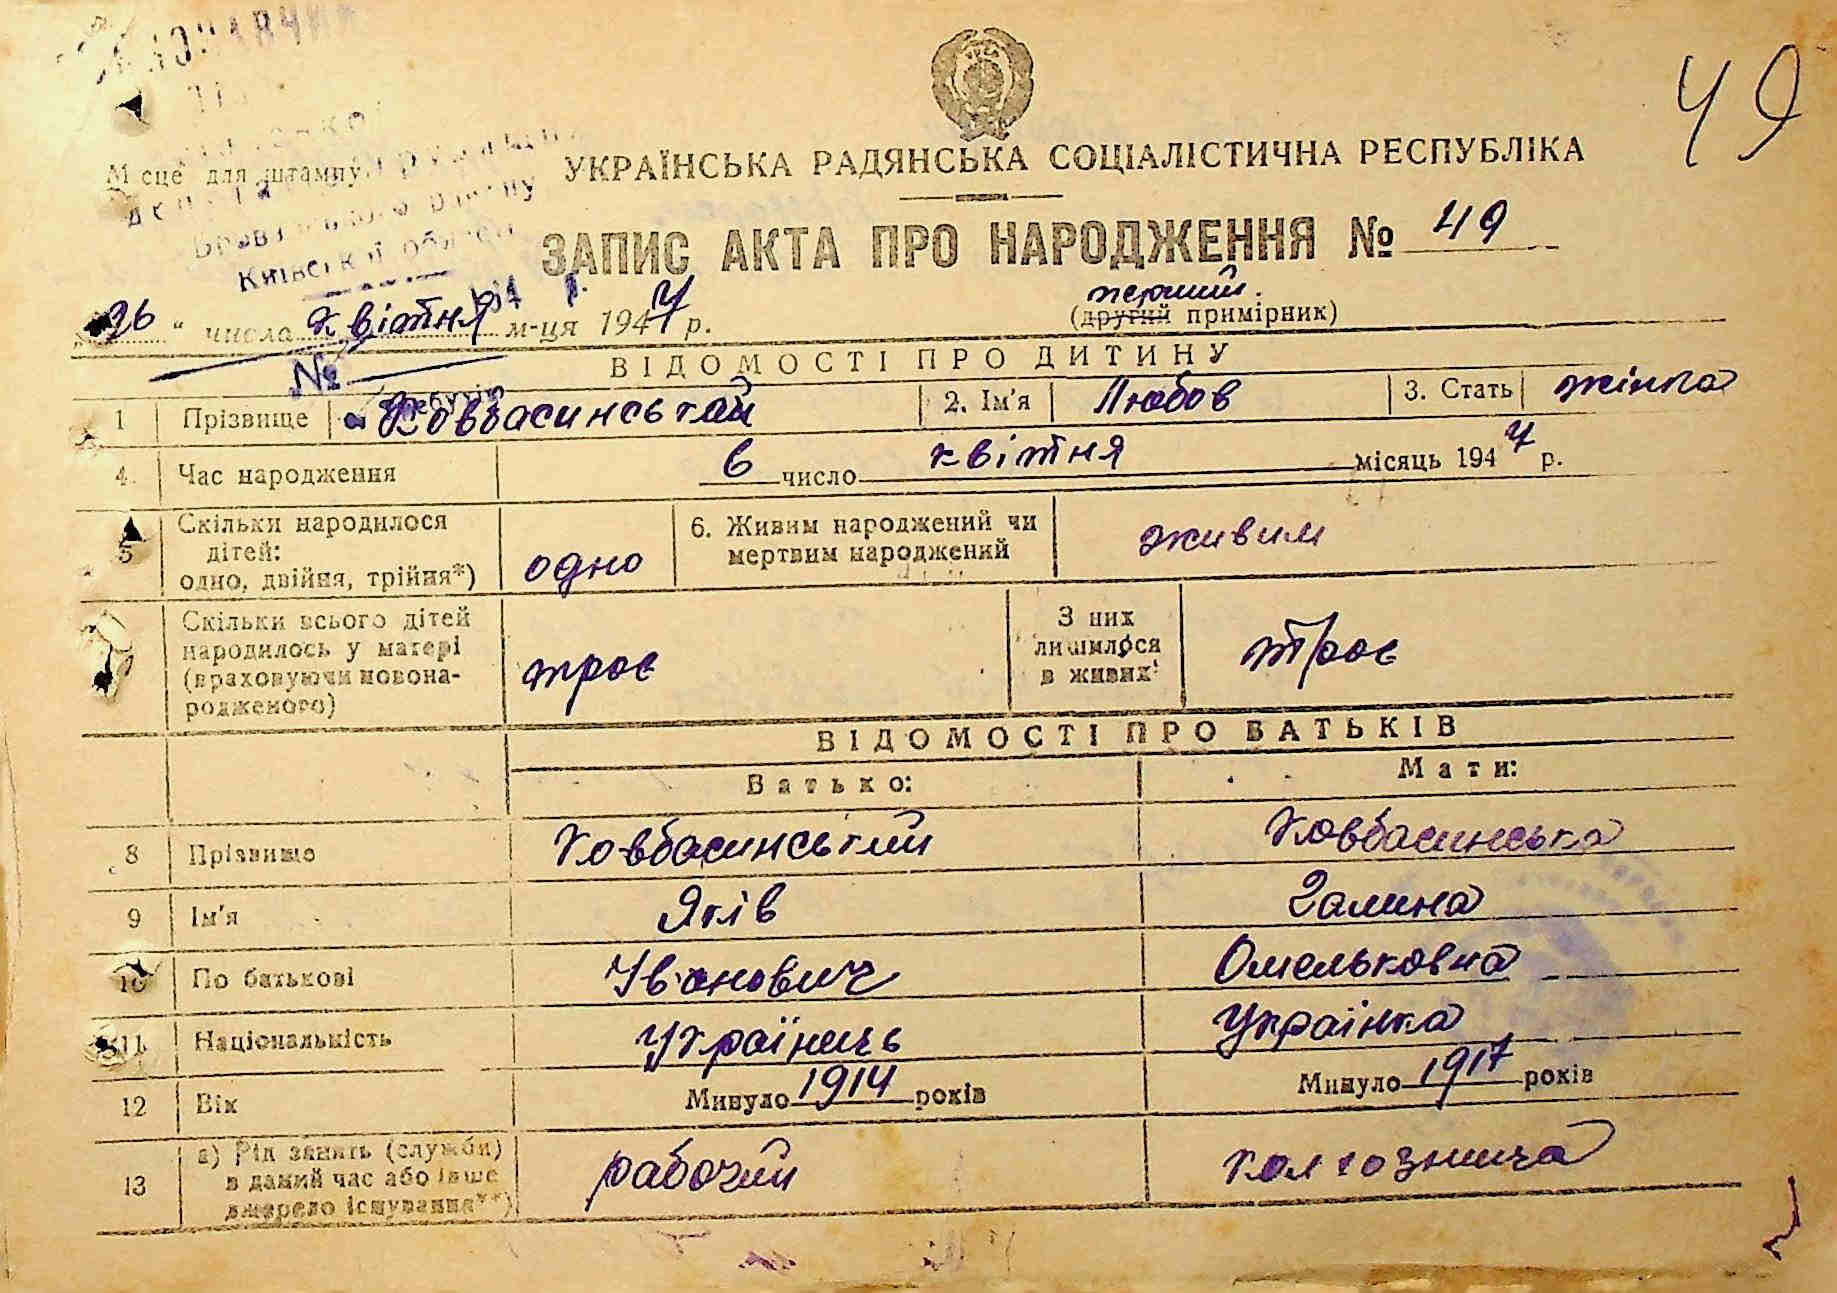 49
УКРАЇНСЬКА РАДЯНСЬКА СОЦІАЛІСТИЧНА РЕСПУБЛІКА
Місце для штампу
Київської
ЗАПИС АКТА ПРО НАРОДЖЕННЯ № 49
перший
(другий примірник)
26 " числа квітня м-ця 1947 р.
№
ВІДОМОСТІ ПРО ДИТИНУ
1 Прізвище Ковбасинський 2. Ім'я Любов 3. Стать жінка
4. Час народження 6 число квітня місяць 1947 р.
5 Скільки народилося дітей: одно, двійня, трійня*) одно 6. Живим народжений чи мертвим народжений живим
Скільки всього дітей народилось у матері (враховуючи новонародженого) троє З них лишилося в живих троє
ВІДОМОСТІ ПРО БАТЬКІВ
Батько: Мати:
8 Прізвище Ковбасинський Ковбасинська
9 Ім'я Яків Галина
10 По батькові Іванович Омельковна
11 Національність Українець Українка
12 Вік Минуло 1914 років Минуло 1917 років
13 а) Рід занять (служби) в даний час або інше джерело існування**) рабочий колгозниця